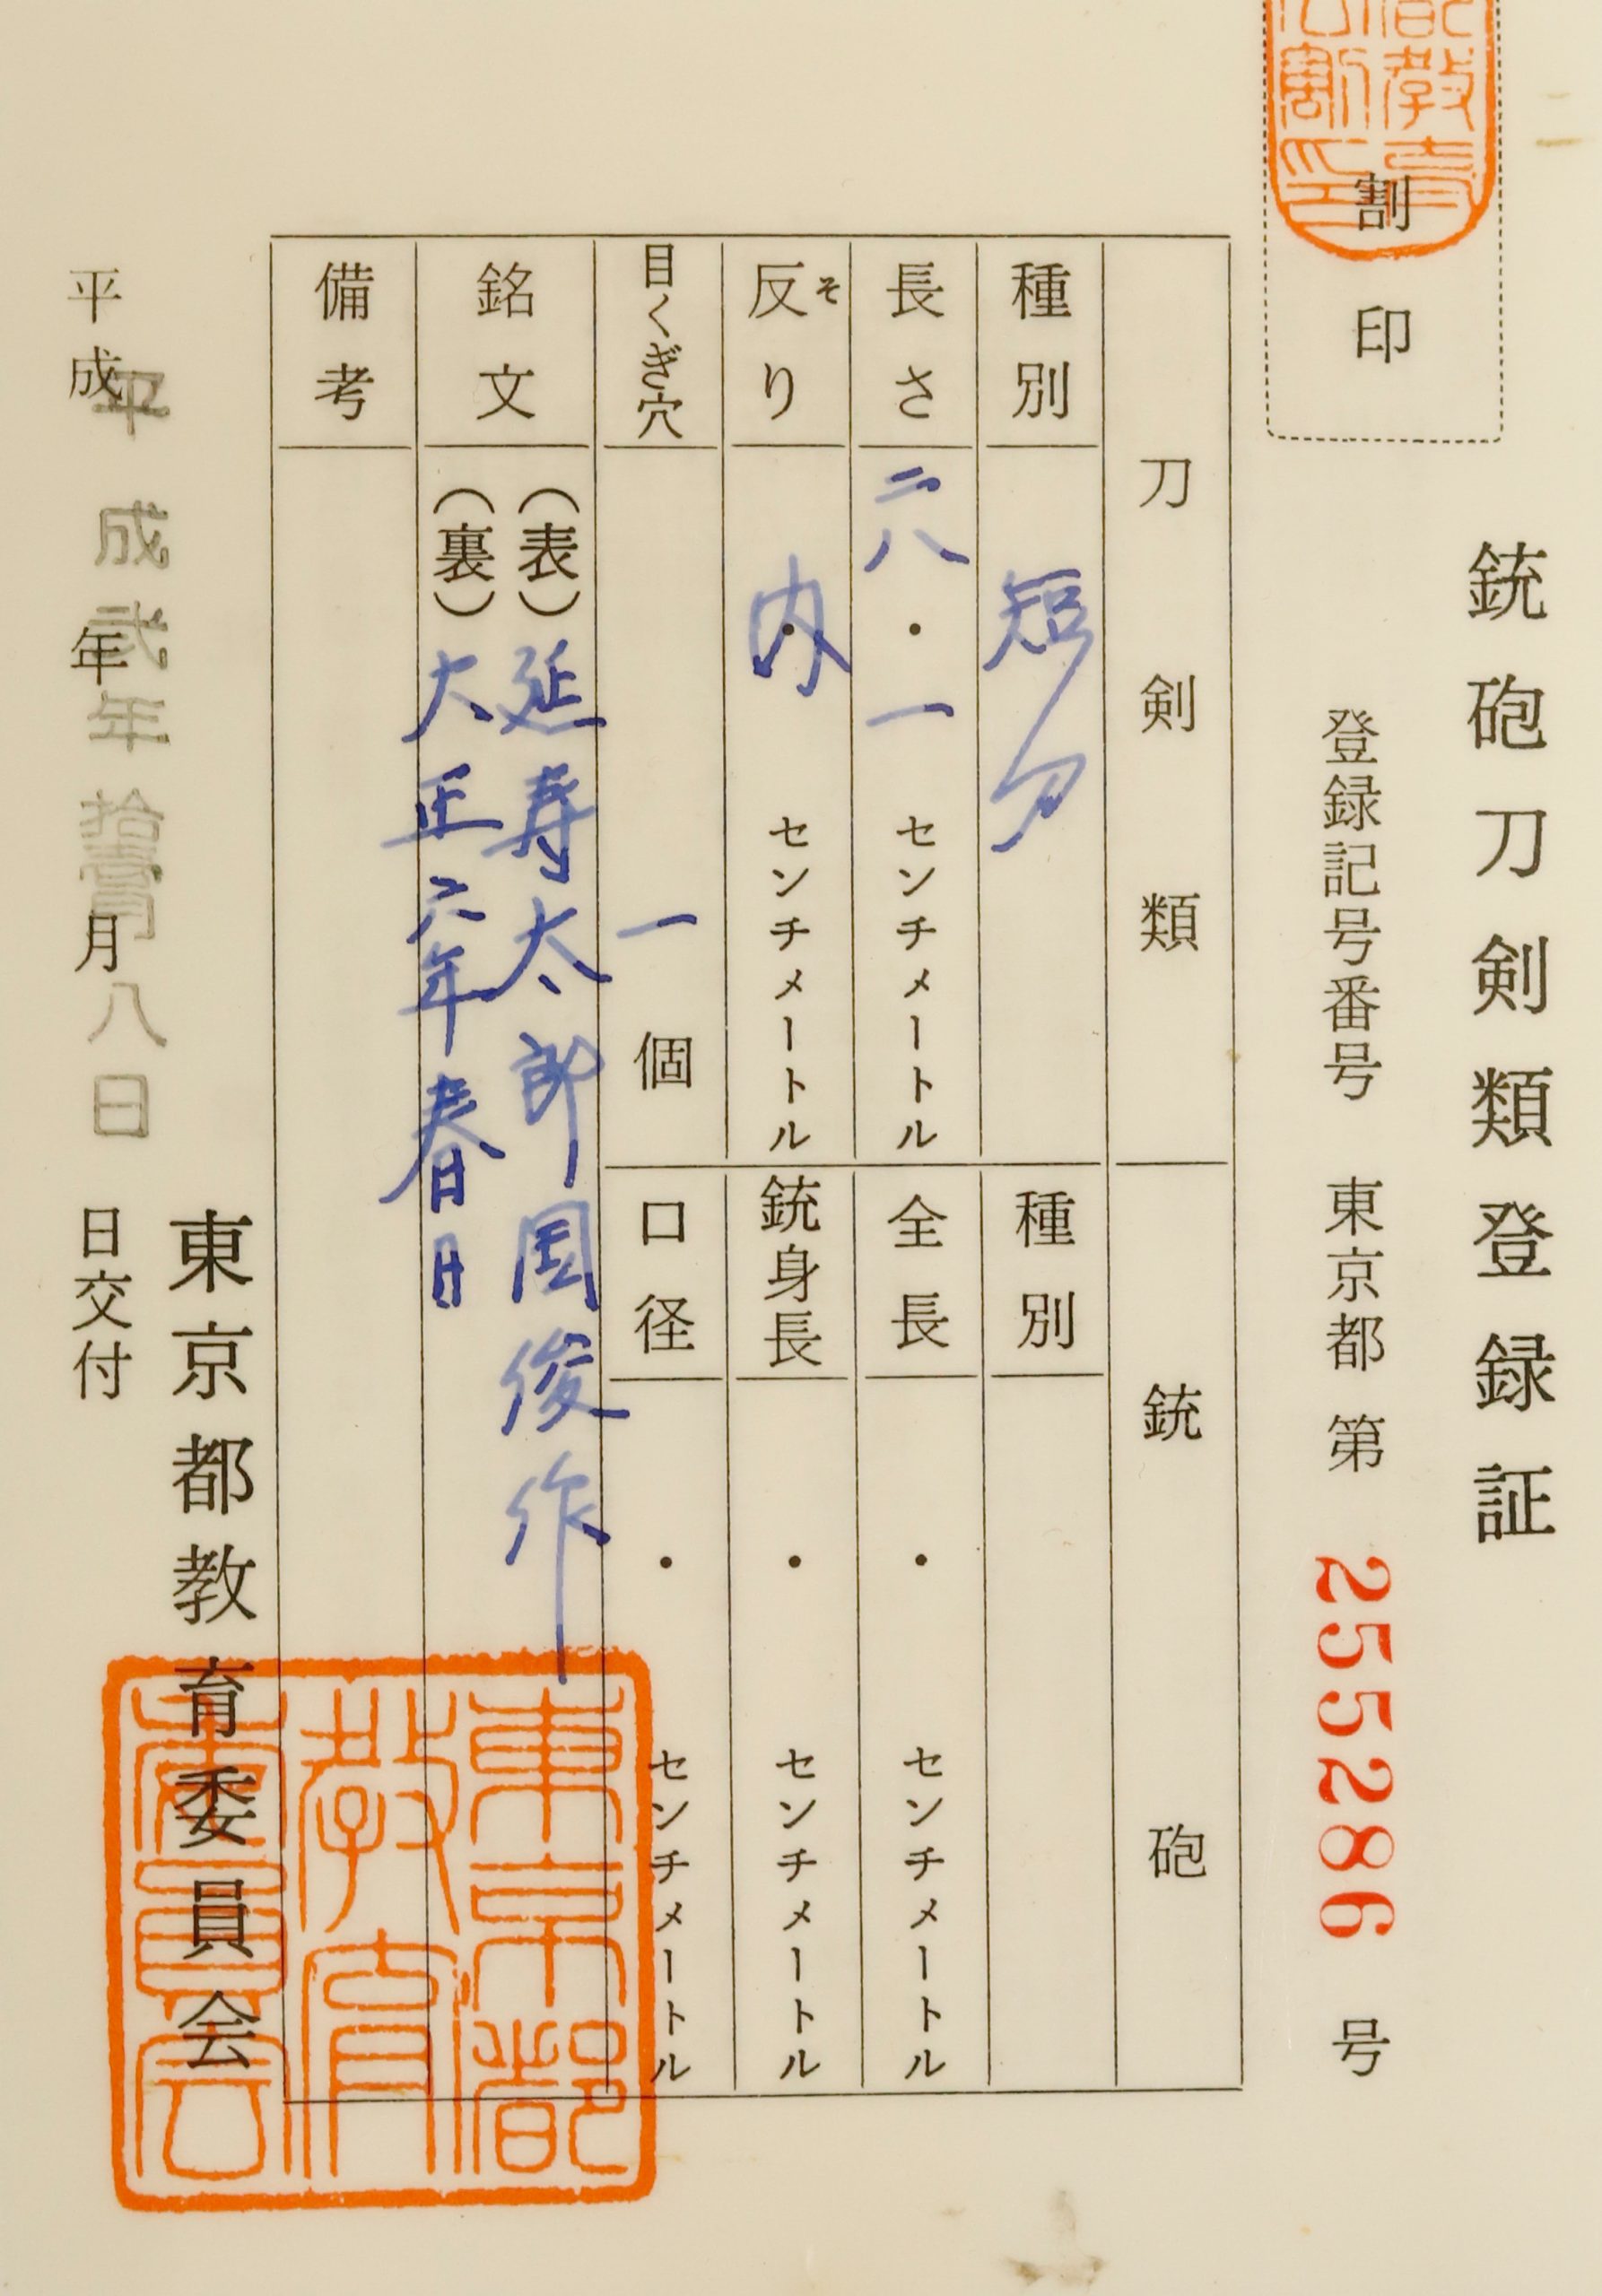 銃砲刀剣類登録証
割印
登録記号番号 東京都 第 255286 号
刀剣類
種別 短刀
長さ 二八・一 センチメートル
反り そ 内 ・ センチメートル
目くぎ穴 一 個
銘文
(表) 延寿太郎国俊作
(裏) 大正六年春日日
備考
銃砲
種別
全長 ・ センチメートル
銃身長 ・ センチメートル
口径 ・ センチメートル
東京都教育委員会
東京都
教育
委員会
平成 年 月 日交付
平成弐年拾壹月八日